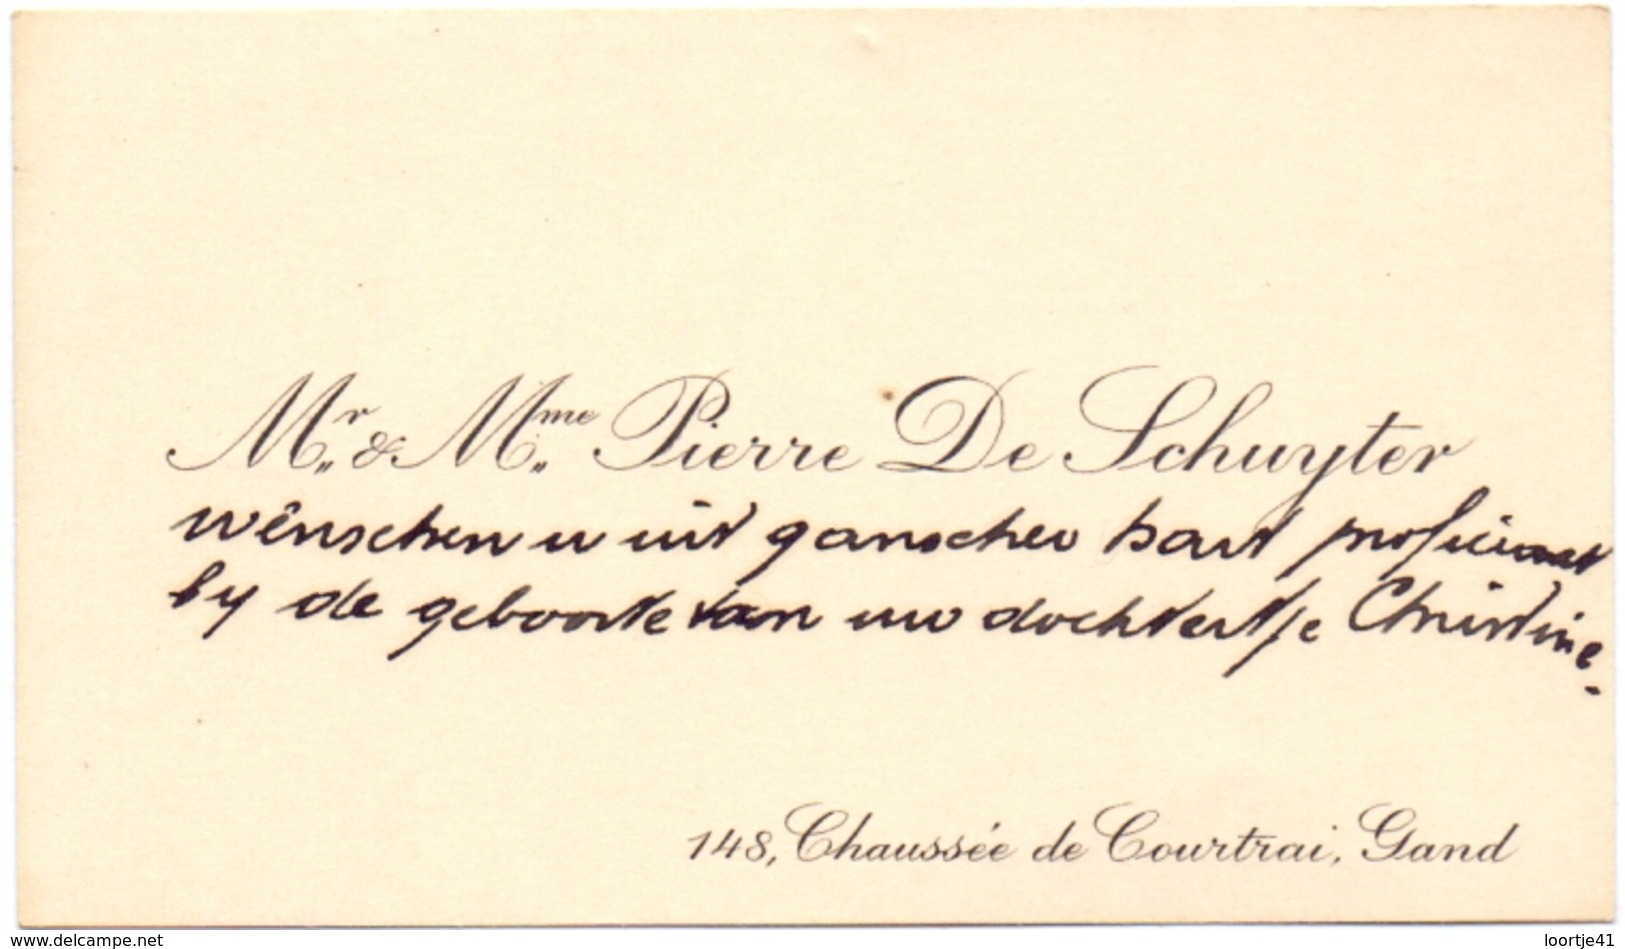 Mr & Mme Pierre De Schuyter
wênschen u uit ganscher hart proficiat
by de geboorte van uw dochtertje Christine.
148, Chaussée de Courtrai, Gand
www.delcampe.net
loortje41